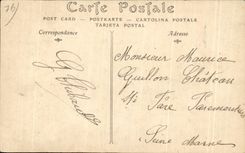 Carte Postale
POST CARD — POSTKARTE — CARTOLINA POSTALE
TARJETA POSTAL
Correspondance
Adresse
Monsieur Maurice
Guillon Château
Ste Fare Faremoutiers
Seine Marne